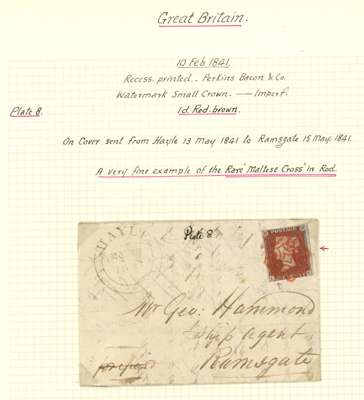 Great Britain.
10 Feb. 1841.
Recess-printed. Perkins Bacon & Co.
Watermark Small Crown. — Imperf.
Plate 8. 1d. Red-brown.
On Cover sent from Hayle 13 May 1841 to Ramsgate 15 May 1841.
A very fine example of the Rare "Maltese Cross" in Red.
HAYLE
Plate 8
POSTAGE
Mr Geo: Hammond
Ship agent
Ramsgate